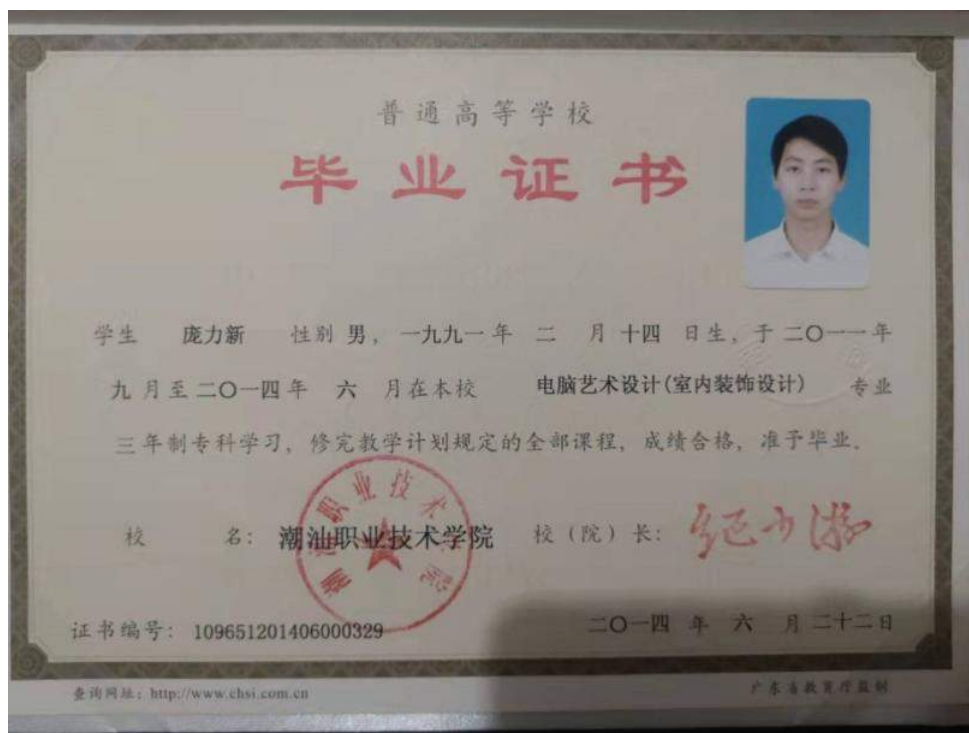 普通高等学校
毕业证书
学生 庞力新 性别 男，一九九一年 二 月 十四 日生，于 二〇一一年
九 月至 二〇一四 年 六 月在本校 电脑艺术设计(室内装饰设计) 专业
三 年制专科学习，修完教学计划规定的全部课程，成绩合格，准予毕业。
潮汕职业技术学院
校 名： 潮汕职业技术学院 校（院）长：
证书编号： 109651201406000329 二〇一四 年 六 月 二十二 日
查询网址：http://www.chsi.com.cn 广东省教育厅监制